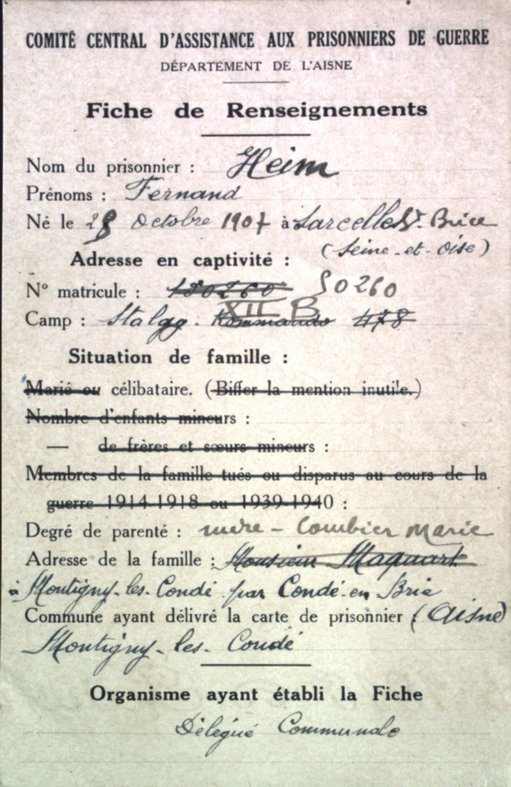 COMITÉ CENTRAL D'ASSISTANCE AUX PRISONNIERS DE GUERRE
DÉPARTEMENT DE L'AISNE
Fiche de Renseignements
Nom du prisonnier : Heim
Prénoms : Fernand
Né le 28 Octobre 1907 à Sarcelles St Brice
(Seine-et-Oise)
Adresse en captivité :
N° matricule : 180260 50260
Camp : Stalag XII B Kommando 478
Situation de famille :
Marié ou célibataire. (Biffer la mention inutile.)
Nombre d'enfants mineurs :
— de frères et sœurs mineurs :
Membres de la famille tués ou disparus au cours de la
guerre 1914-1918 ou 1939-1940 :
Degré de parenté : mère - Combier Marie
Adresse de la famille : Monsieur Maquart
à Montigny-les-Condé par Condé-en Brie
Commune ayant délivré la carte de prisonnier : (Aisne)
Montigny-les-Condé
Organisme ayant établi la Fiche
Délégué Communale